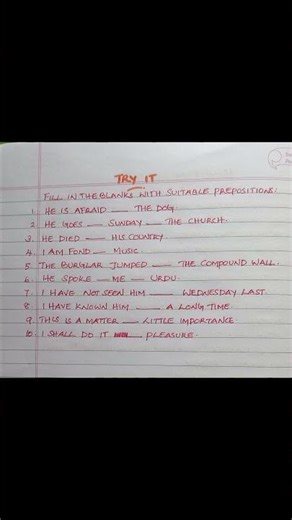 TRY IT
FILL IN THE BLANKS WITH SUITABLE PREPOSITIONS:
1. HE IS AFRAID ___ THE DOG.
2. HE GOES ___ SUNDAY ___ THE CHURCH.
3. HE DIED ___ HIS COUNTRY.
4. I AM FOND ___ MUSIC.
5. THE BURGLAR JUMPED ___ THE COMPOUND WALL.
6. HE SPOKE ___ ME ___ URDU.
7. I HAVE NOT SEEN HIM ___ WEDNESDAY LAST.
8. I HAVE KNOWN HIM ___ A LONG TIME.
9. THIS IS A MATTER ___ LITTLE IMPORTANCE.
10. I SHALL DO IT ___ PLEASURE.